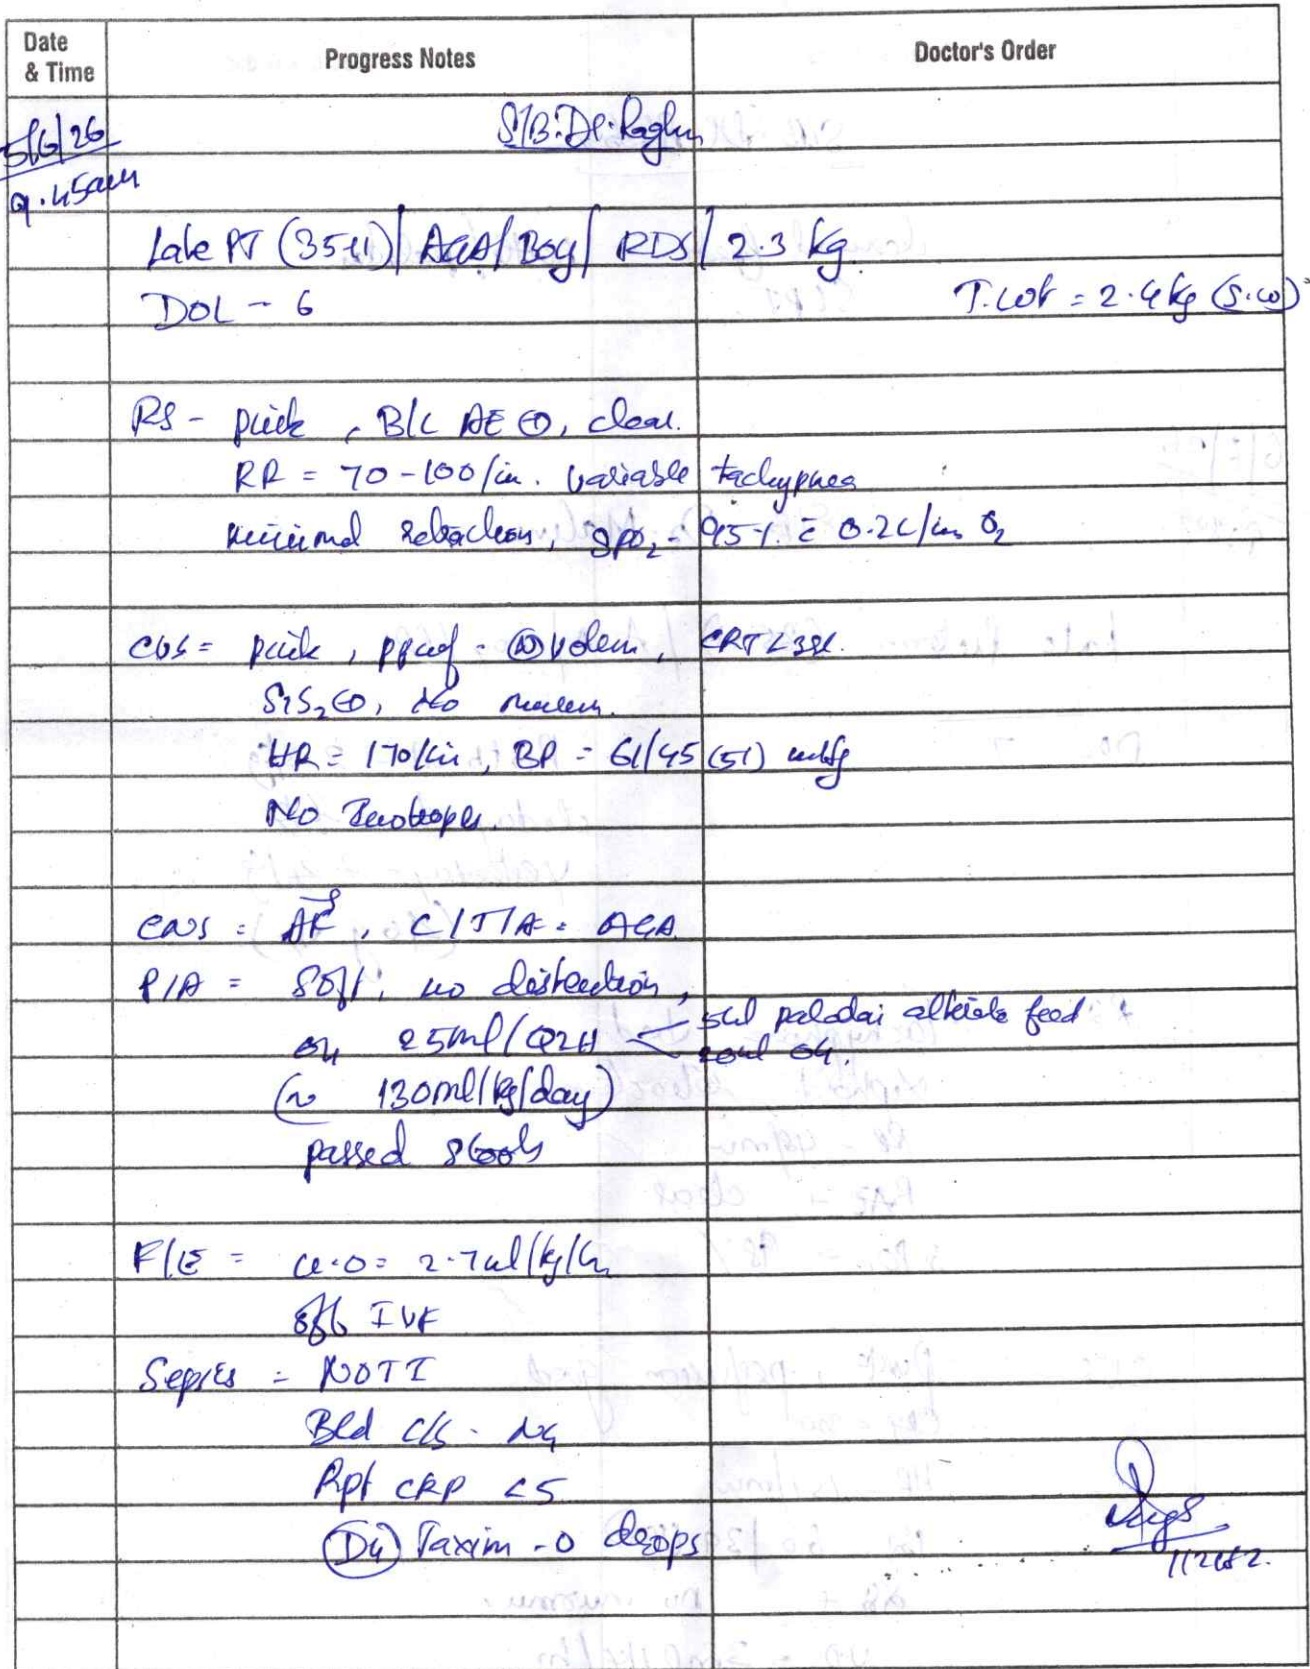 Date & Time
Progress Notes
Doctor's Order
5/6/26
9.45am
S/B: Dr. Raghu
Late PT (35+1) / AGA / Boy / RDS / 2.3 kg
DOL - 6
T.wt = 2.4 kg (S.W)
RS - pink, B/L AE ⊕, clear.
RR = 70-100/min. variable tachypnea
minimal retractions, SPO2 - 95% c̄ 0.2L/min O2
CVS = pink, - Ⓝ volem, CRT <3sec.
S1S2 ⊕, No murmur.
HR = 170/min, BP = 61/45 (51) mmHg
No Inotropes.
CNS = AF, C/T/A = AGA
P/A = soft, no distension,
on 25ml/Q2H < 5ml paladai alternate feed
20ml OG.
(~ 130ml/kg/day)
passed stools
F/E = U.O = 2.7ml/kg/hr
off IVF
Sepsis = NOTI
Bld C/S - NG
Rpt CRP <5
(D4) Taxim-O drops
112682.